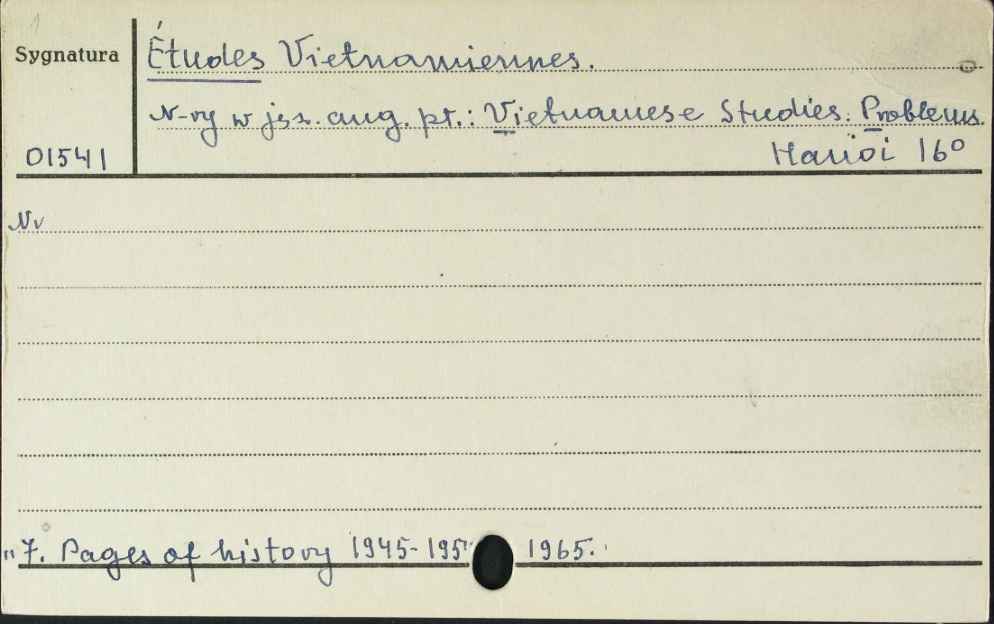 1
Sygnatura
Études Vietnamiennes.
N-ry w jęz. ang. pt.: Vietnamese Studies. Problems.
01541
Hanoi 16°
Nr
"7. Pages of history 1945-195 1965.